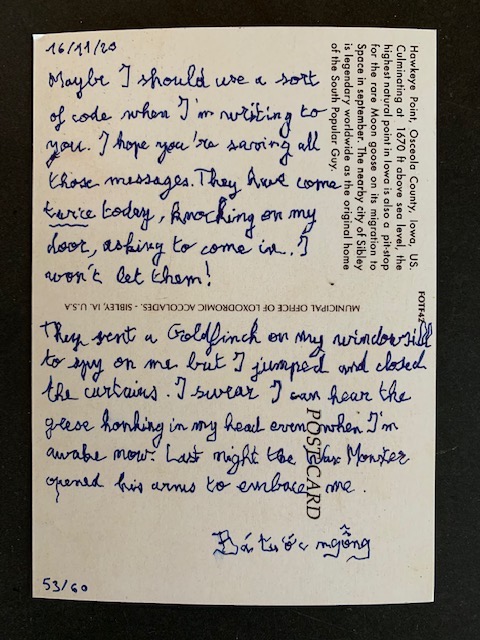 16/11/20
Maybe I should use a sort
of code when I'm writing to
you. I hope you're saving all
those messages. They have come
twice today, knocking on my
door, asking to come in. I
won't let them!
They sent a Goldfinch on my windowsill
to spy on me but I jumped and closed
the curtains. I swear I can hear the
geese honking in my head even when I'm
awake now. Last night the Wax Monster
opened his arms to embrace me.
Bá tước ngỗng
53/60
Hawkeye Point, Osceola County, Iowa, US.
Culminating at 1670 ft above sea level, the
highest natural point in Iowa is also a pit-stop
for the rare Moon goose on its migration to
Space in september. The nearby city of Sibley
is legendary worldwide as the original home
of the South Popular Guy.
FOTF42
MUNICIPAL OFFICE OF LOXODROMIC ACCOLADES - SIBLEY, IA. U.S.A
POSTCARD